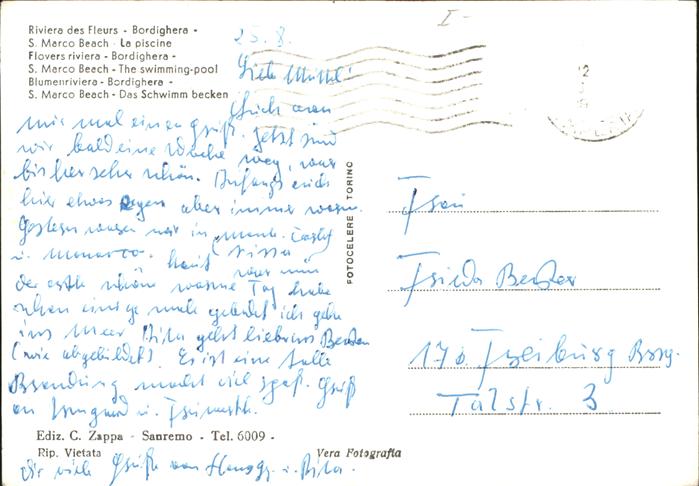 Riviera des Fleurs - Bordighera -
S. Marco Beach - La piscine
Flovers riviera - Bordighera -
S. Marco Beach - The swimming-pool
Blumenriviera - Bordighera -
S. Marco Beach - Das Schwimm becken
25. 8.
Liebe
mir mal einen Gruß. Jetzt sind
wir bald eine Woche weg, war
bisher sehr schön. Anfangs auch
hier etwas Regen aber immer warm.
Gestern waren wir in Monte
u. Monaco. Heut
der erste schöne warme Tag habe
schon einige male gebadet ich gehe
ins Meer Rita geht lieber ins Becken
(wie abgebildet). Es ist eine tolle
Brandung macht viel Spaß. Gruß
an Irmgard u.
Dir viele Grüße von u. Rita.
FOTOCELERE TORINO
Frau
Frieda
Freiburg Brsg.
Talstr. 3
Ediz. C. Zappa - Sanremo - Tel. 6009 -
Rip. Vietata
Vera Fotografia